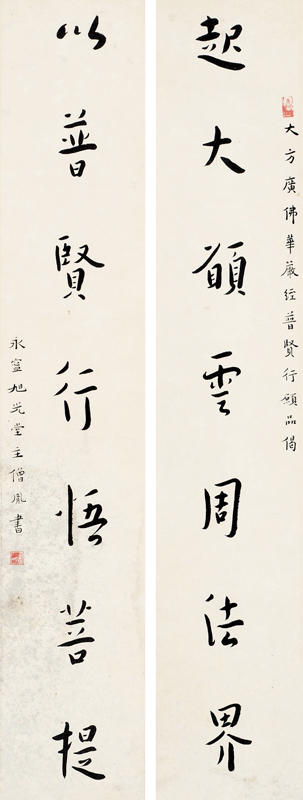 大方廣佛華嚴經普賢行願品偈
起大願雲周法界
以普賢行悟菩提
永寧旭光堂主僧胤書